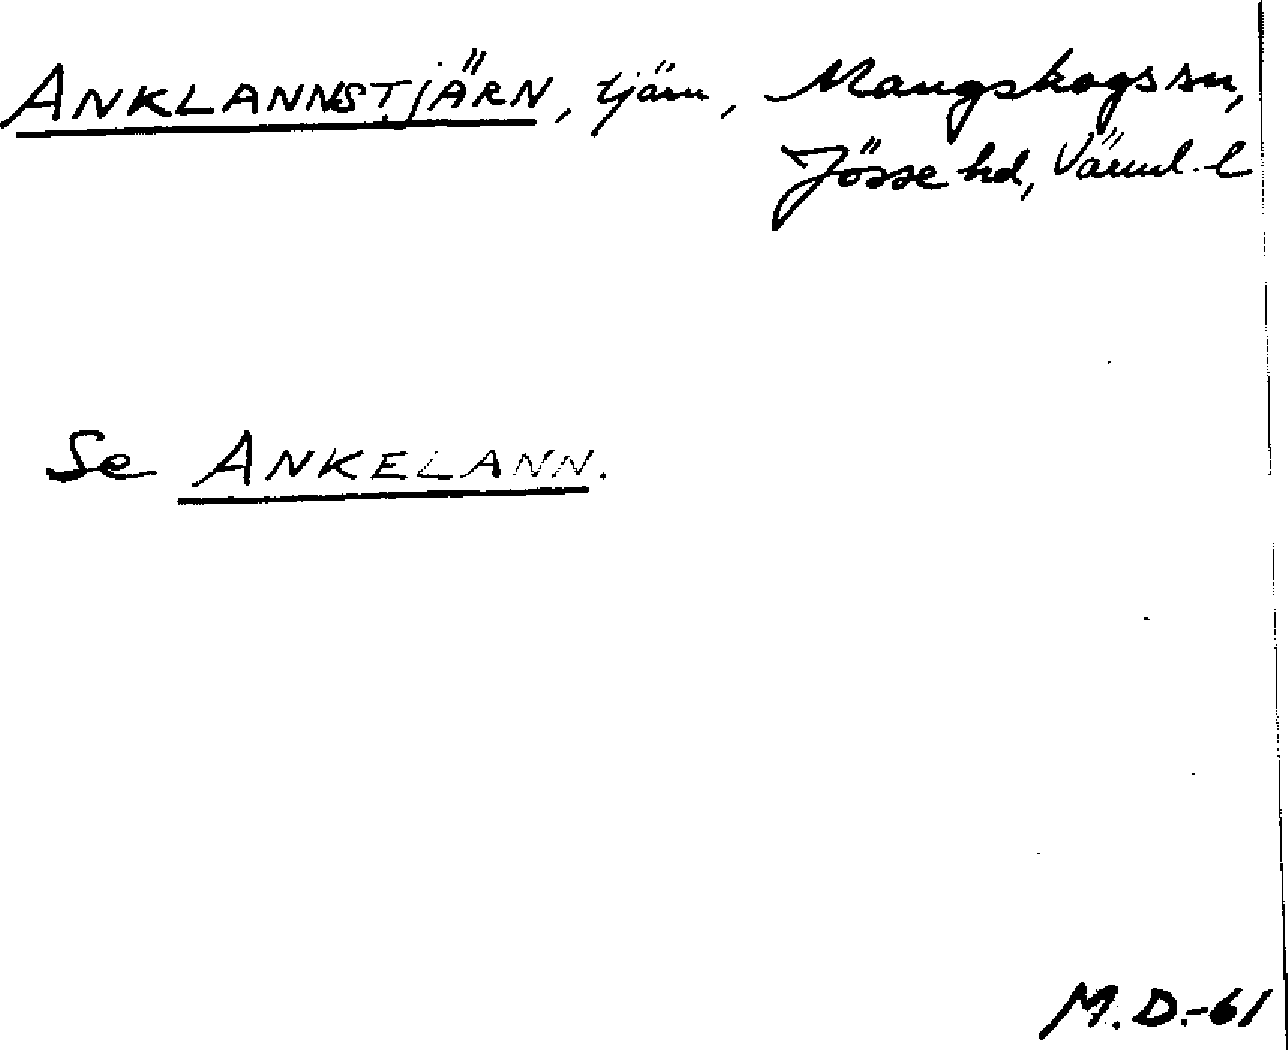 ANKLANNSTJÄRN, tjärn, Mangskogs sn,
Jösse hd, Värml. l
Se ANKELANN.
M.D.-61